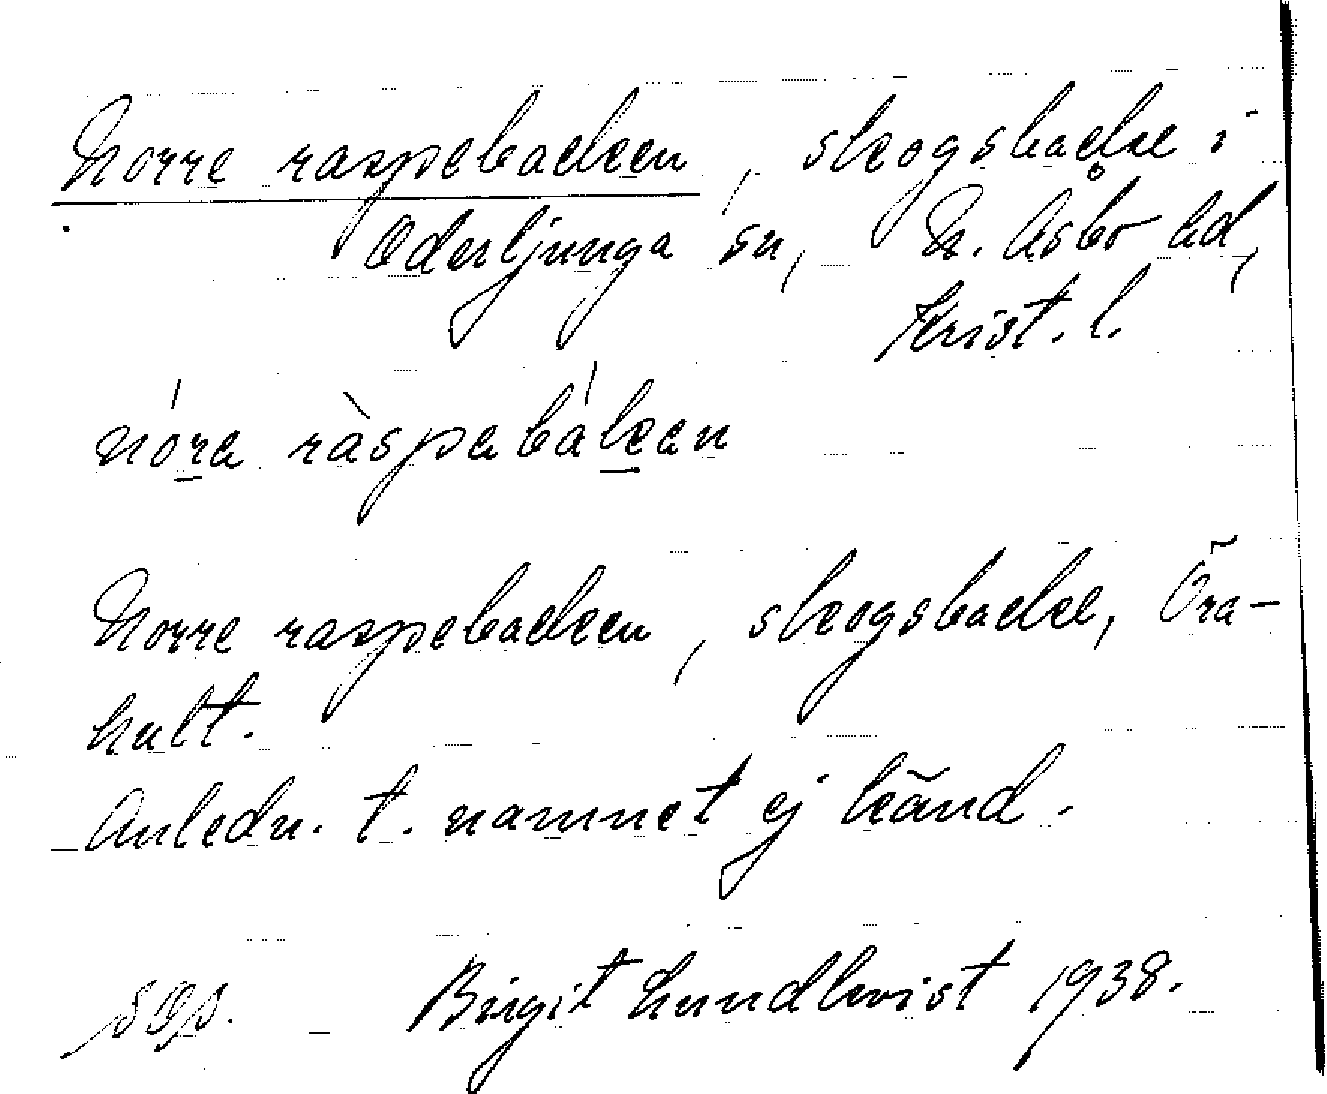 Norre raspebacken, skogsbacke i
Oderljunga sn, N. Åsbo hd,
Krist. l.
nóra ràspabákan
Norre raspebacken, skogsbacke, Öra-
hult.
Anledn. t. namnet ej känd.
Birgit Lundkvist 1938.